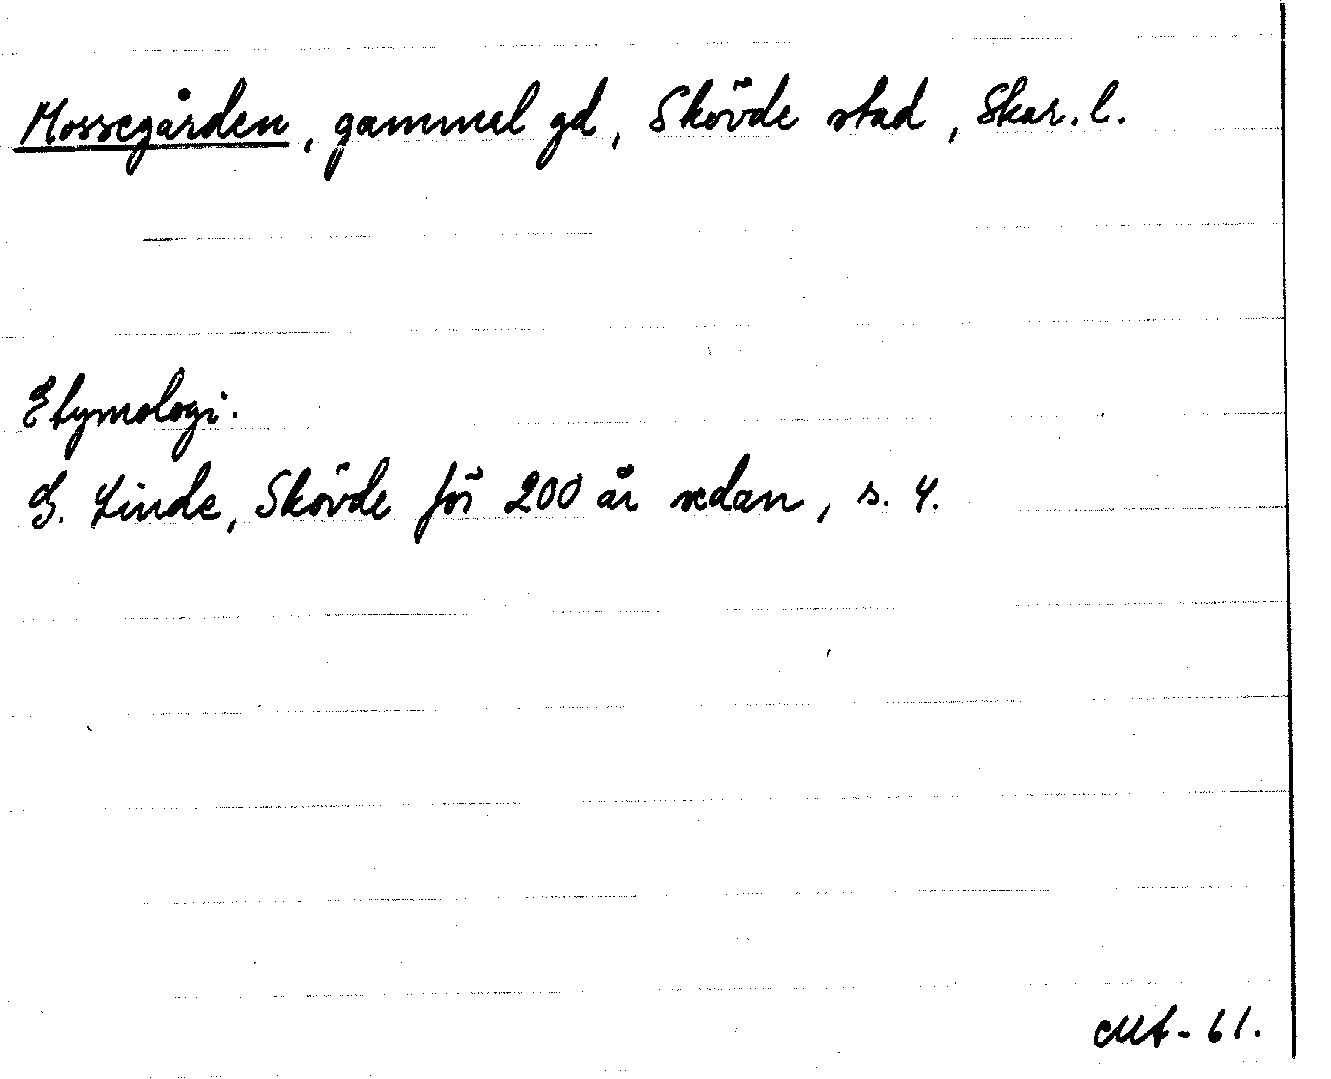 Mossegården, gammel gd, Skövde stad, Skar. l.
Etymologi.
G. Linde, Skövde för 200 år sedan, s. 4.
-61.